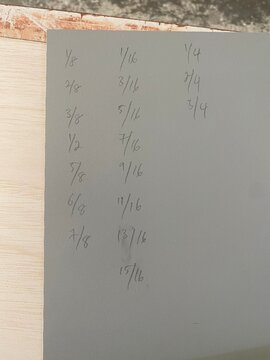 1/8 1/16 1/4
2/8 3/16 2/4
3/8 5/16 3/4
1/2 7/16
5/8 9/16
6/8 11/16
7/8 13/16
15/16